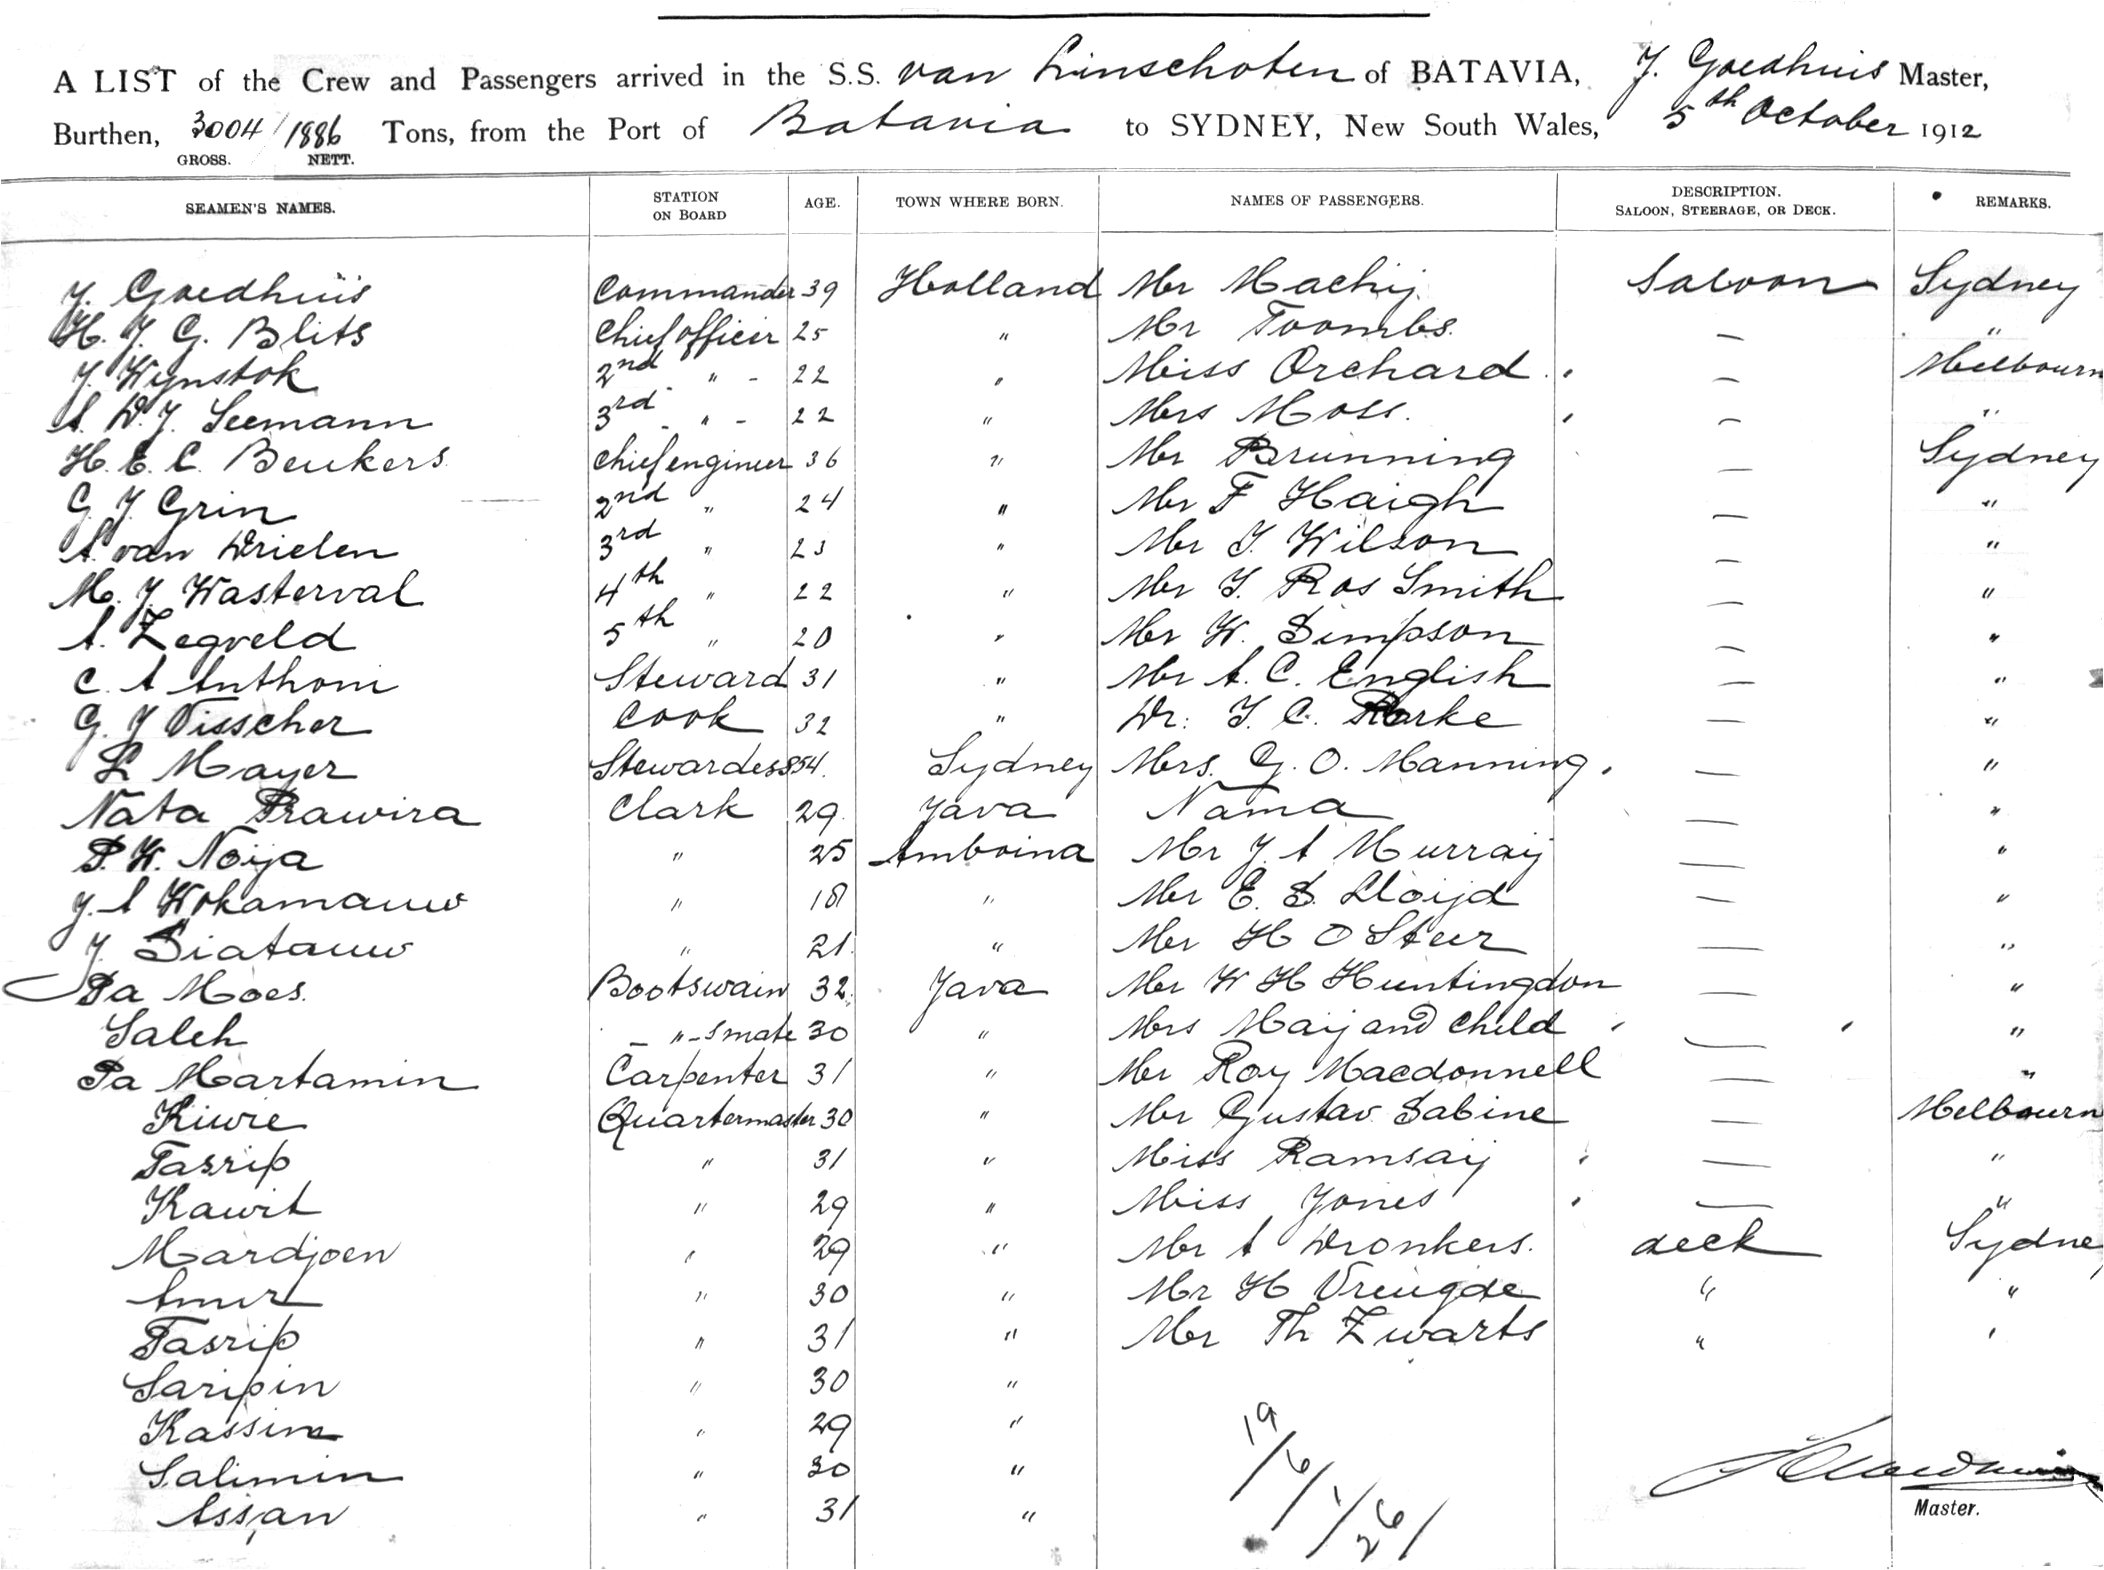 A LIST of the Crew and Passengers arrived in the S.S. van Linschoten of BATAVIA, J. Goedhuis Master,
Burthen, 3004/1886 Tons, from the Port of Batavia to SYDNEY, New South Wales, 5th October 1912
GROSS. NETT.
SEAMEN'S NAMES. STATION ON BOARD AGE. TOWN WHERE BORN. NAMES OF PASSENGERS. DESCRIPTION. SALOON, STEERAGE, OR DECK. REMARKS.
J. Goedhuis Commander 39 Holland Mr Machij Saloon Sydney
H. J. G. Blits Chief officier 25 " Mr Toombs. — "
J. Wijnstok 2nd " - 22 " Miss Orchard — Melbourn
A. D. J. Seemann 3rd - " - 22 " Mrs Moss. — "
H. E. C. Beukers Chief engineer 36 " Mr Brunning — Sydney
G. J. Grin 2nd " 24 " Mr F Haigh — "
A. van Drielen 3rd " 23 " Mr J. Wilson — "
M. J. Wasterval 4th " 22 " Mr J. Ros Smith — "
A. Zegveld 5th " 20 " Mr W. Simpson — "
C. A Anthoni Steward 31 " Mr A. C. English — "
G. J Visscher Cook 32 " Dr. J. C. Rorke — "
L Mayer Stewardess 54. Sydney Mrs. G. O. Manning — "
Nata Prawira Clark 29. Java Nama — "
P. W. Noija " 25 Amboina Mr J. A Murraij — "
J. A Wokamauw " 18 " Mr E. S. Lloijd — "
J. Siatauw " 21. " Mr H O Steer — "
Pa Moes. Bootswain 32. Java Mr W H Huntingdon — "
Saleh - "-smate 30 " Mrs Maij and Child — "
Pa Martamin Carpenter 31 " Mr Roy Macdonnell — "
Kiwie Quartermaster 30 " Mr Gustav Sabine — Melbourn
Tasrip " 31 " Miss Ramsaij — "
Kawit " 29 " Miss Jones — "
Mardjoen " 29 " Mr A Dronkers. deck Sydne
Amir " 30 " Mr H Vreugde " "
Tasrip " 31 " Mr Th Zwarts " "
Saripin " 30 "
Kassim " 29 "
Salimin " 30 "
Assan " 31 "
19/6/1/26/
Master.